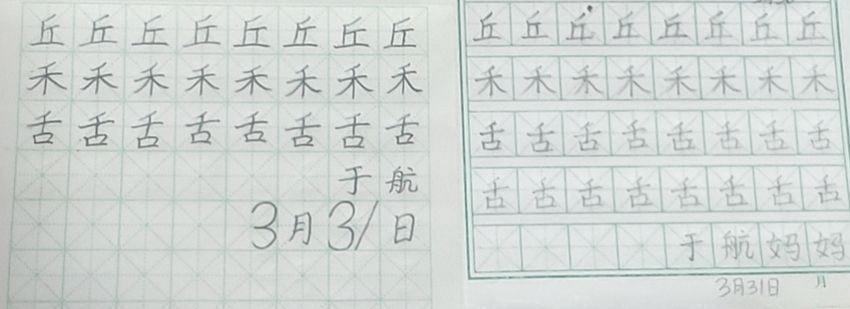 丘丘丘丘丘丘丘丘
禾禾禾禾禾禾禾禾
舌舌舌舌舌舌舌舌
于航
3月31日
丘丘丘丘丘丘丘丘
禾禾禾禾禾禾禾禾
舌舌舌舌舌舌舌舌
舌舌舌舌舌舌舌舌
于航妈妈
3月31日 月